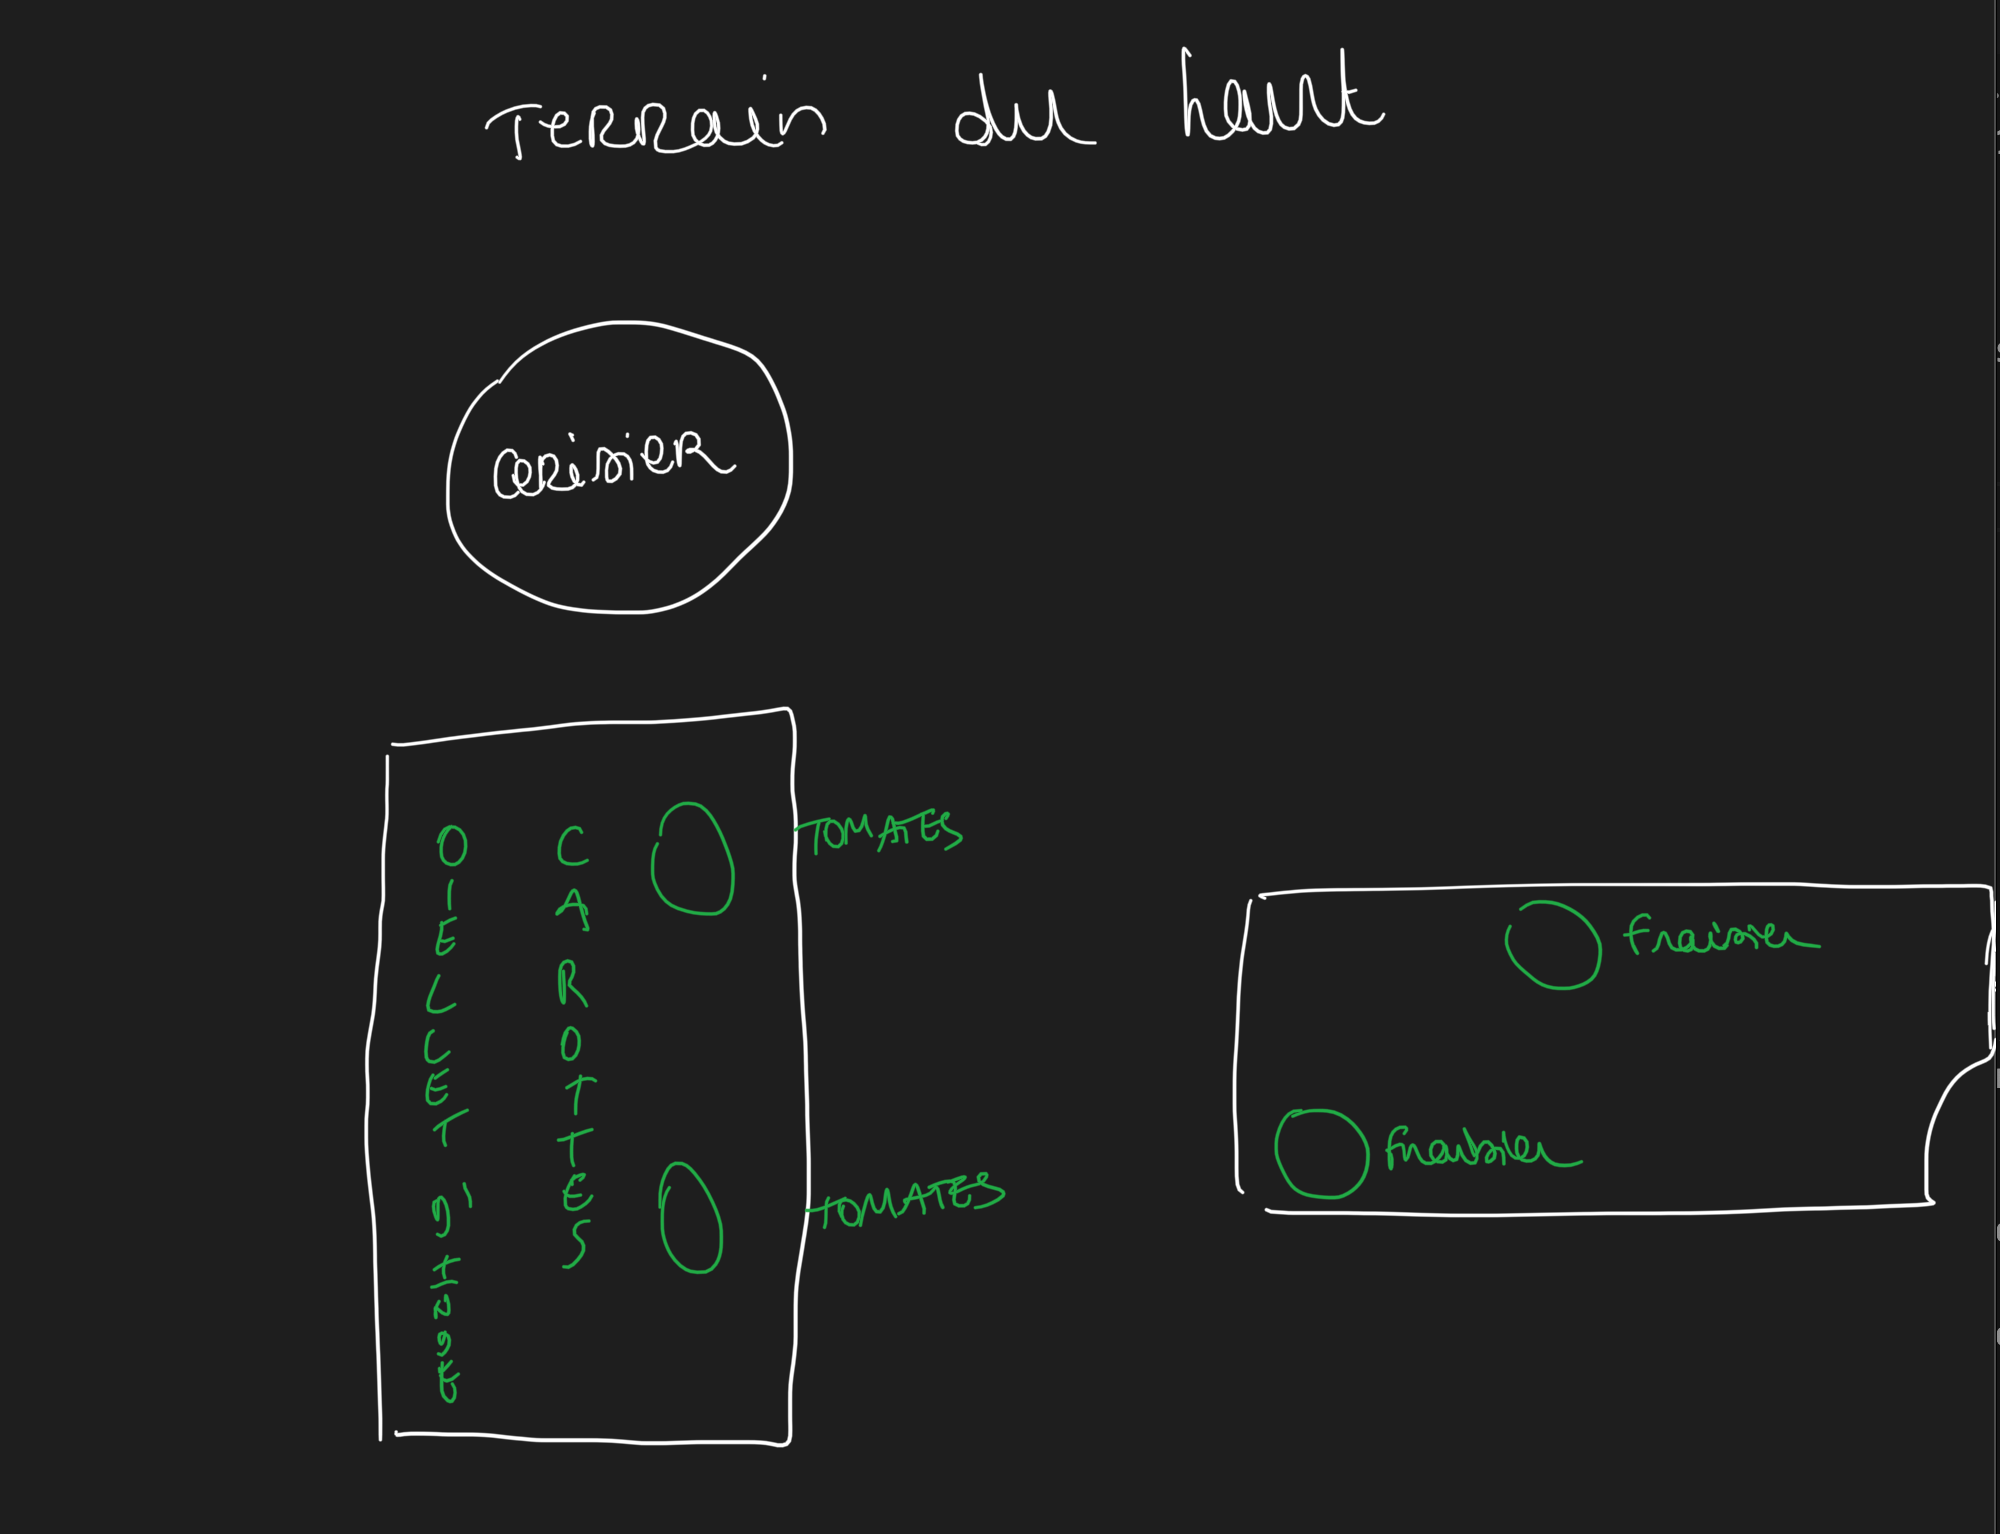 Terrain du haut
cerisier
OIELLET d'INDE
CAROTTES
TOMATES
TOMATES
fraisier
fraisier